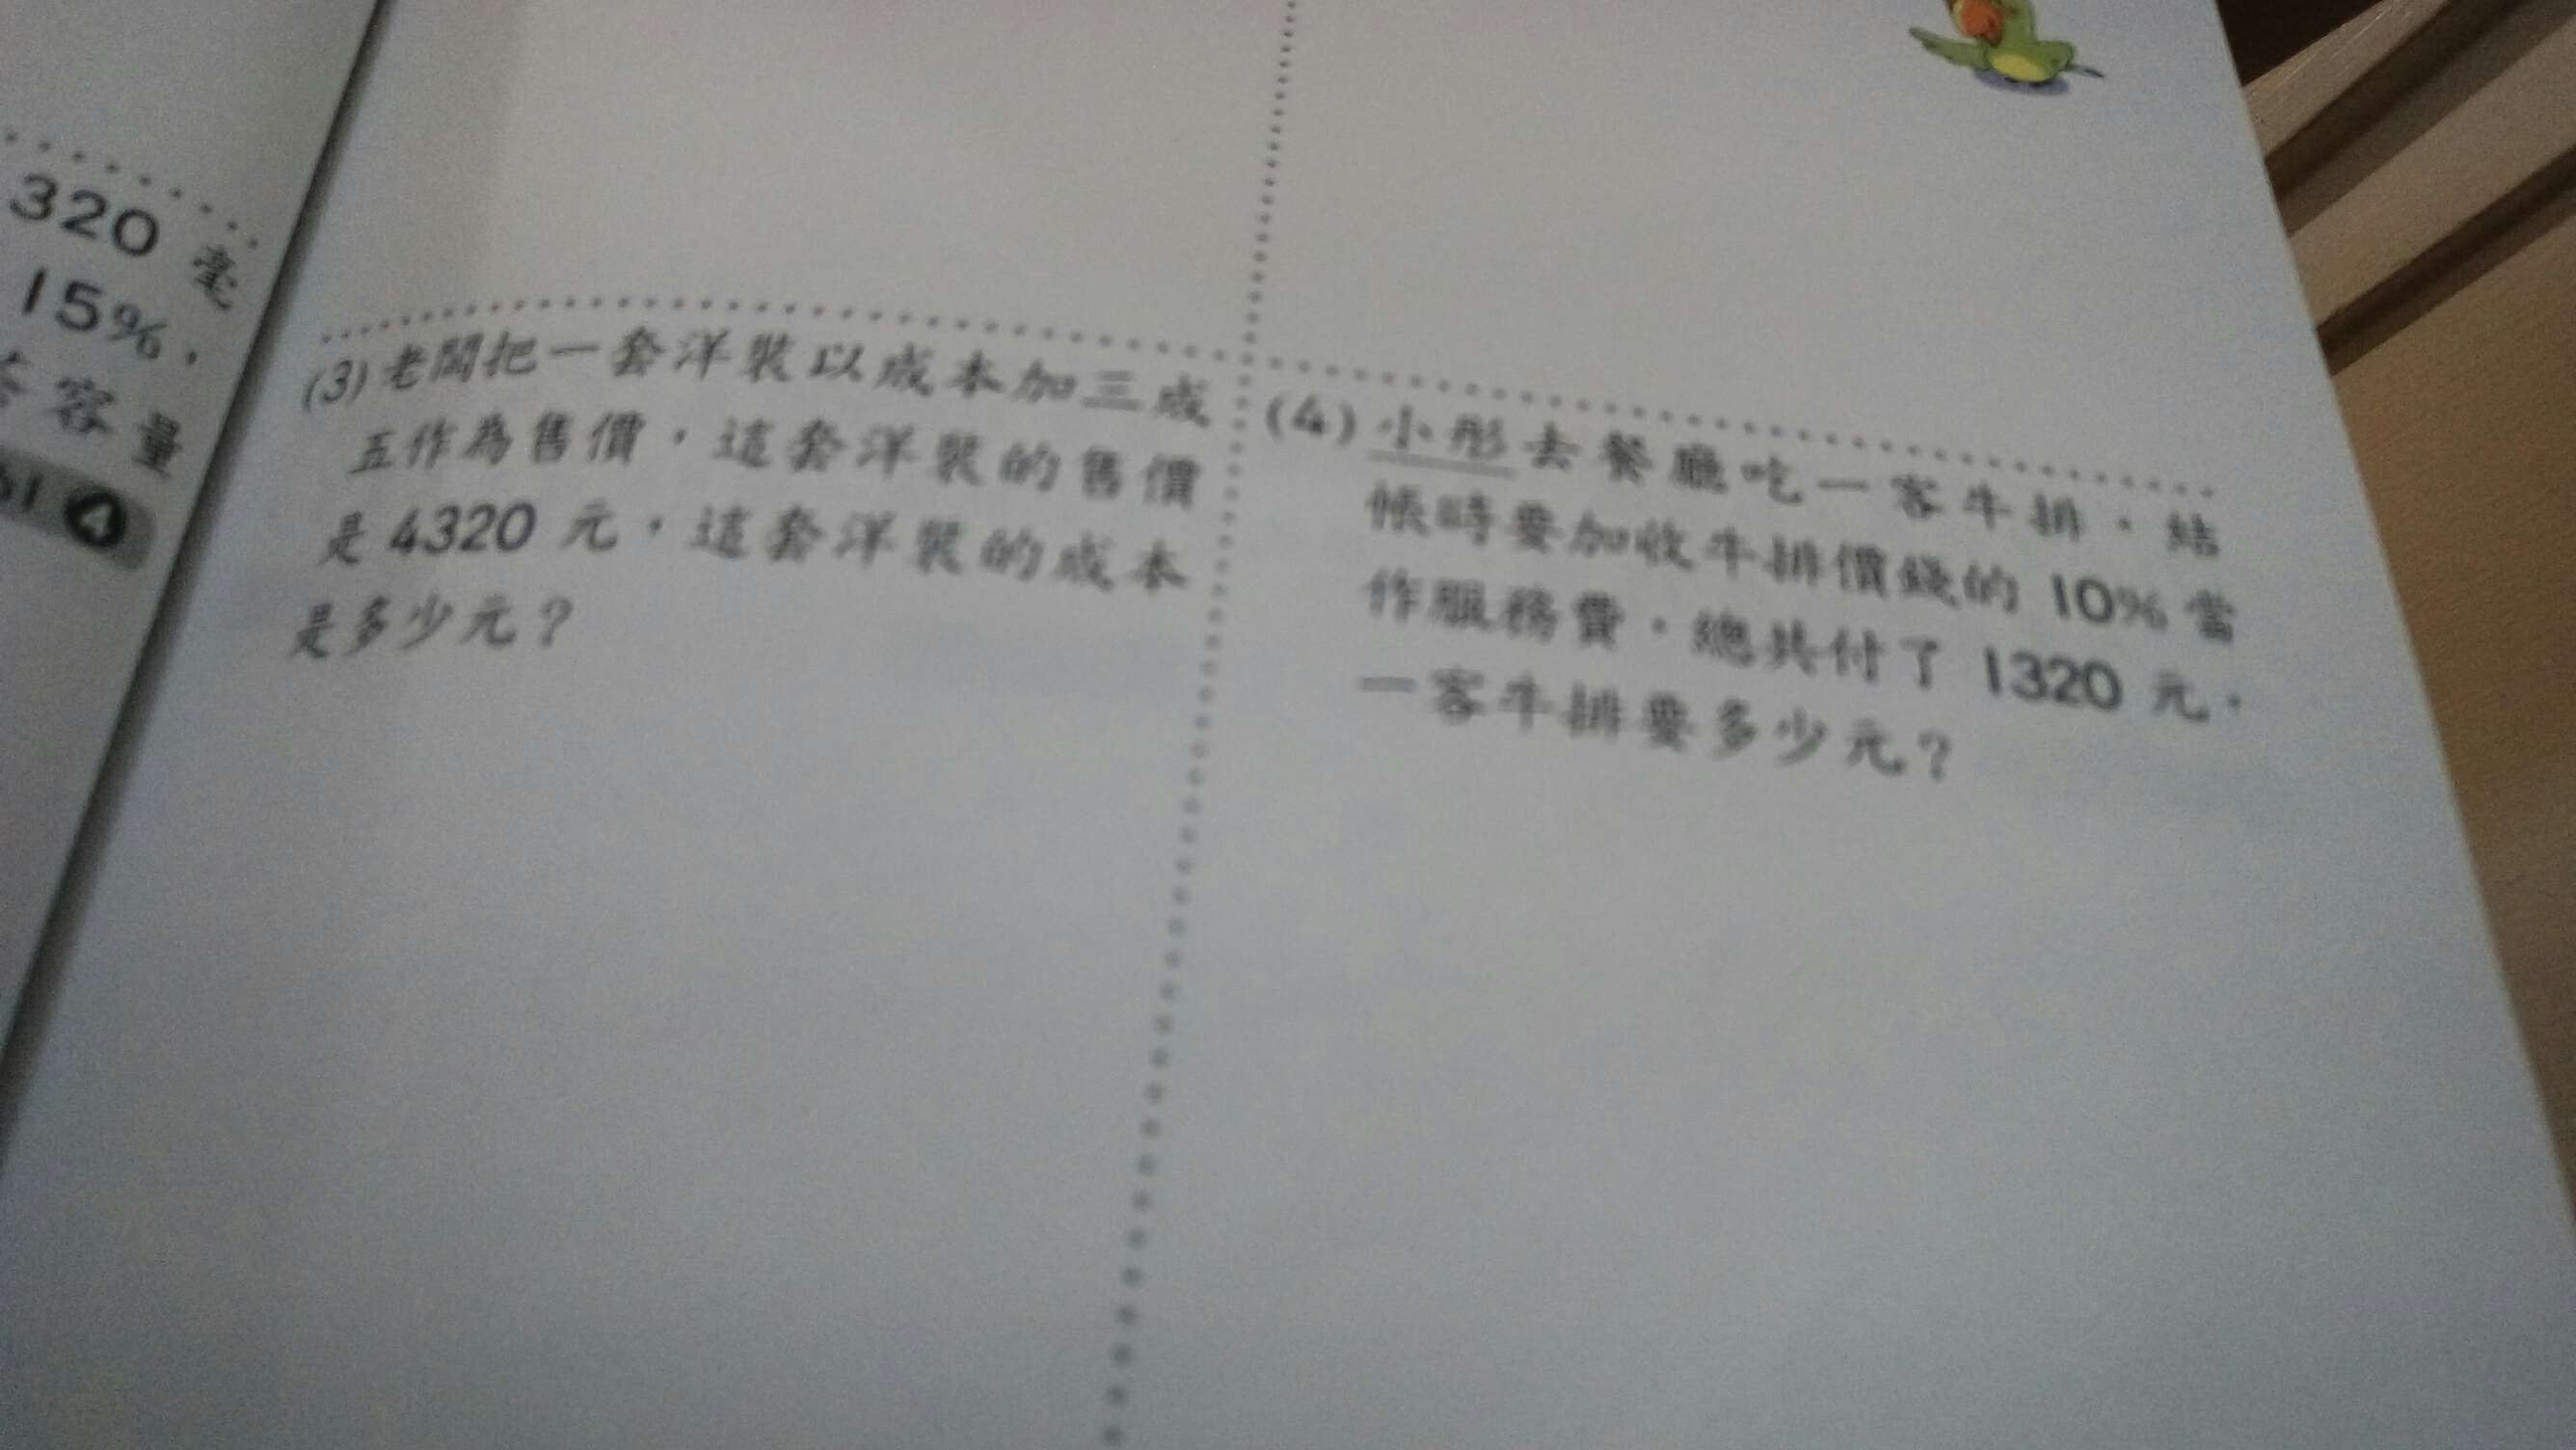 320 毫
15%，
容量
(3) 老闆把一套洋裝以成本加三成
五作為售價，這套洋裝的售價
是 4320 元，這套洋裝的成本
是多少元？
(4) 小彤去餐廳吃一客牛排，結
帳時要加收牛排價錢的 10% 當
作服務費，總共付了 1320 元，
一客牛排要多少元？